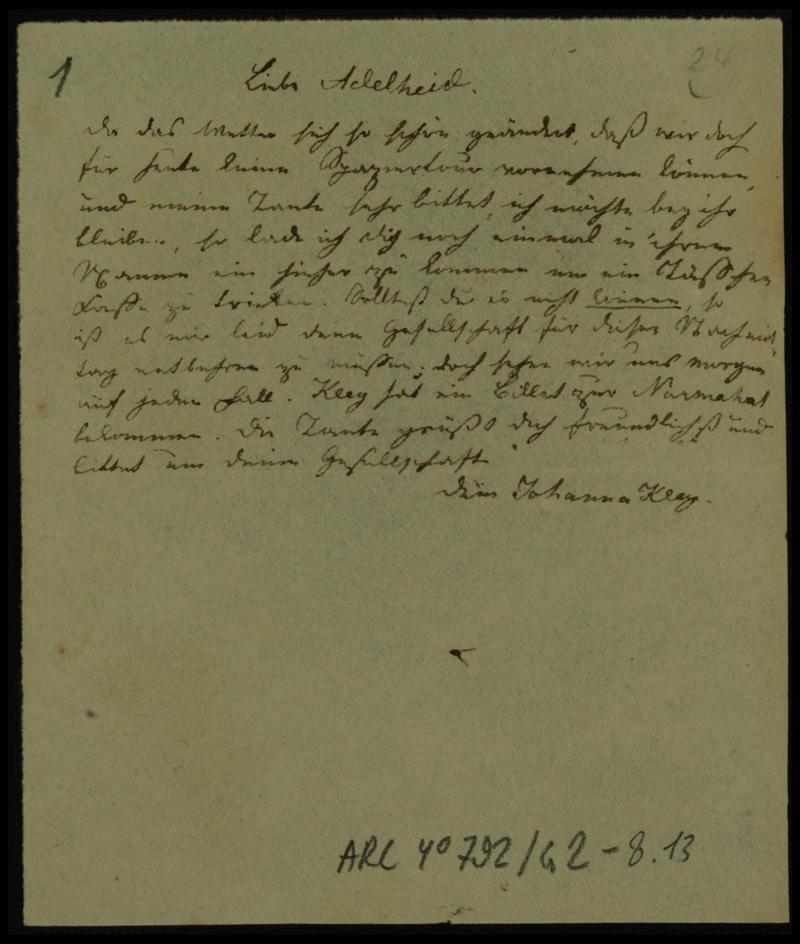 1
24
Liebe Adelheid.
da das Wetter sich so schön geändert, daß wir doch
für heute keine Spaziertour vornehmen können,
und meine Tante sehr bittet, ich möchte bey ihr
bleiben, so lade ich dich noch einmal in ihrem
Namen ein hieher zu kommen um ein Täßchen
Kaffe zu trinken. Solltest du es nicht können, so
ist es mir leid deine Gesellschaft für diesen Nachmit
tag entbehren zu müssen; doch sehen wir uns morgen
auf jeden Fall. Kley hat ein Billet zur Nurmahal
bekommen. Die Tante grüßt dich freundlichst und
bittet um deine Gesellschaft
Deine Johanna Kley.
ARC 4° 792/G2-8.13